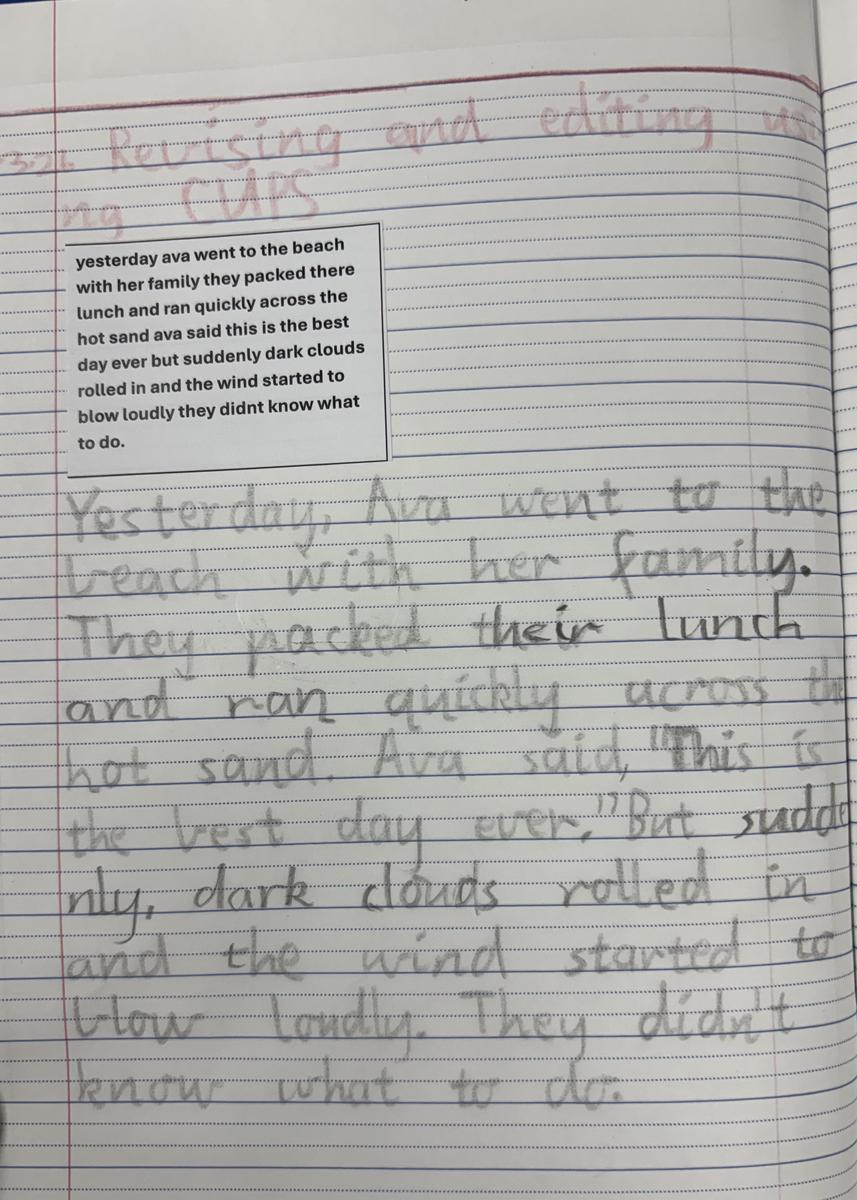 3.26 Revising and editing usi
ng CUPS
yesterday ava went to the beach
with her family they packed there
lunch and ran quickly across the
hot sand ava said this is the best
day ever but suddenly dark clouds
rolled in and the wind started to
blow loudly they didnt know what
to do.
Yesterday, Ava went to the
beach with her family.
They packed their lunch
and ran quickly across the
hot sand. Ava said, "This is
the best day ever." But sudde
nly, dark clouds rolled in
and the wind started to
blow loudly. They didn't
know what to do.